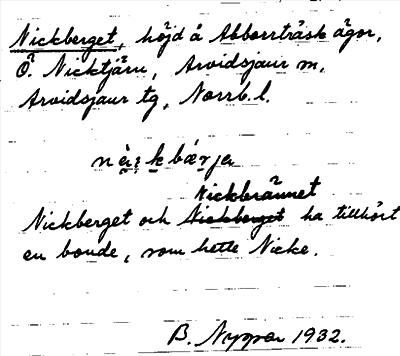 Nickberget, höjd å Abborrträsk ägor,
Ö. Nicktjärn, Arvidsjaur m,
Arvidsjaur tg, Norrb.l.
Nickbrännet
Nickberget och Nickberget ha tillhört
en bonde, som hette Nicke.
B. Nyman 1932.